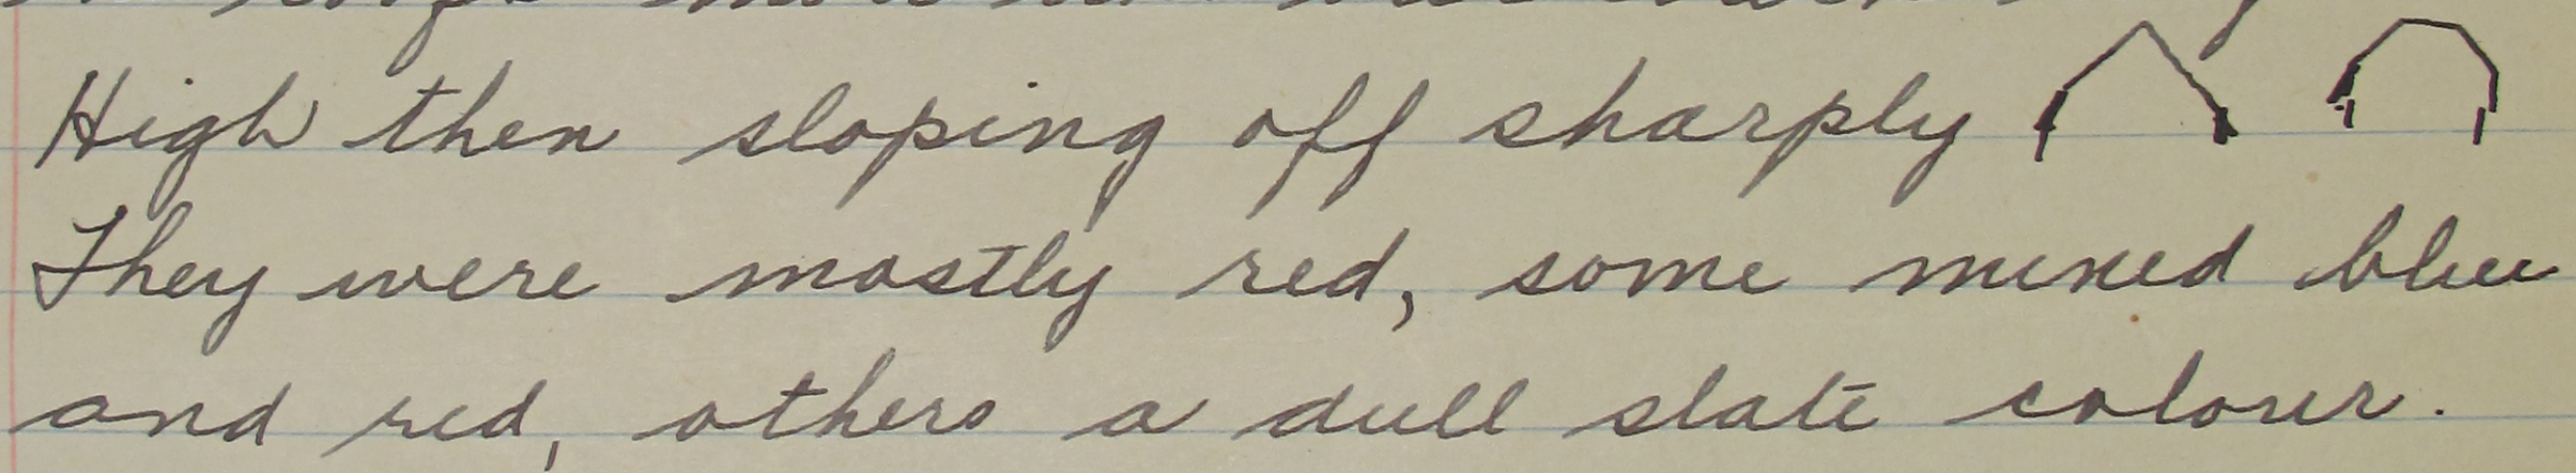 High then sloping off sharply
They were mostly red, some mixed blue
and red, others a dull slate colour.